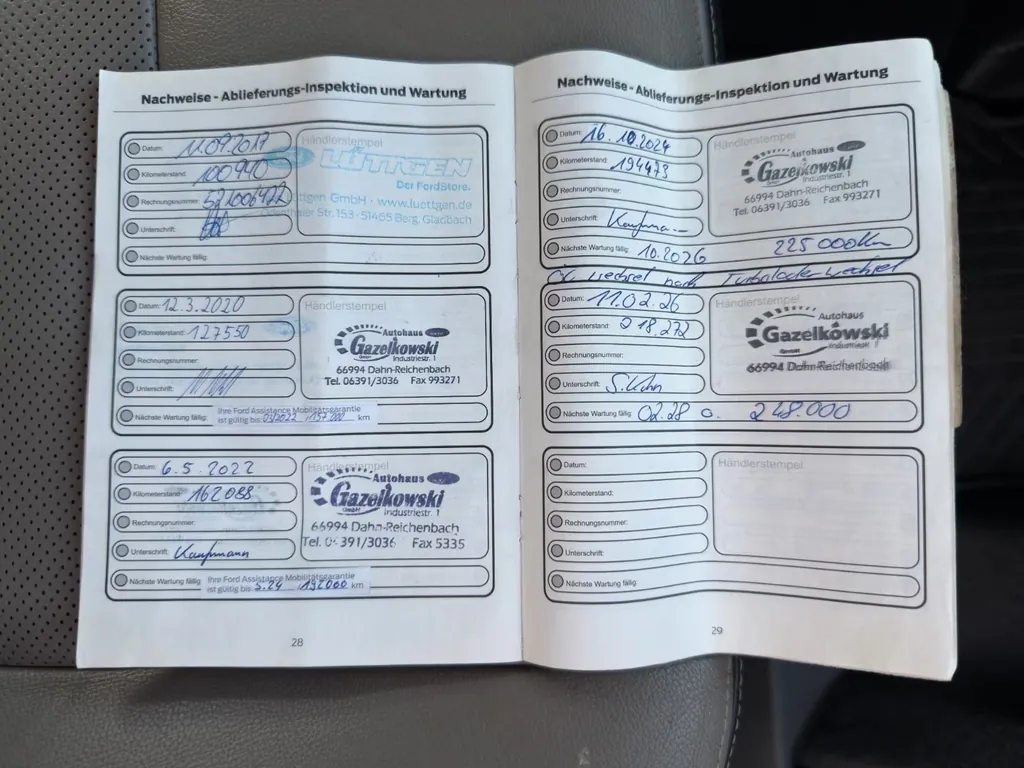 Nachweise - Ablieferungs-Inspektion und Wartung
Datum: 11.09.2017
Kilometerstand: 100940
Rechnungsnummer:
Unterschrift:
Nächste Wartung fällig:
Händlerstempel
LÜTTGEN
Der FordStore.
ttgen GmbH · www.luettgen.de
Str. 153 - 51465 Berg. Gladbach
Datum: 12.3.2020
Kilometerstand: 127550
Rechnungsnummer:
Unterschrift:
Nächste Wartung fällig: Ihre Ford Assistance Mobilitätsgarantie
ist gültig bis: 03/2022 157 000 km
Händlerstempel
Autohaus Ford
Gazelkowski
GmbH Industriestr. 1
66994 Dahn-Reichenbach
Tel. 06391/3036 Fax 993271
Datum: 6.5.2022
Kilometerstand: 162088
Rechnungsnummer:
Unterschrift: Kaufmann
Nächste Wartung fällig: Ihre Ford Assistance Mobilitätsgarantie
ist gültig bis: 5.24 192000 km
Händlerstempel
Autohaus Ford
Gazelkowski
GmbH Industriestr. 1
66994 Dahn-Reichenbach
Tel. 06391/3036 Fax 5335
28
Nachweise - Ablieferungs-Inspektion und Wartung
Datum: 16.10.2024
Kilometerstand: 194473
Rechnungsnummer:
Unterschrift: Kaufmann
Nächste Wartung fällig: 10.2026 225 000 Km
Händlerstempel
Autohaus Ford
Gazelkowski
GmbH Industriestr. 1
66994 Dahn-Reichenbach
Tel. 06391/3036 Fax 993271
Öl wechsel nach Turbolader wechsel
Datum: 11.02.26
Kilometerstand: 218.272
Rechnungsnummer:
Unterschrift: S. Kuhn
Nächste Wartung fällig: 02.28 o. 248.000
Händlerstempel
Autohaus Ford
Gazelkowski
GmbH Industriestr. 1
66994 Dahn-Reichenbach
Datum:
Kilometerstand:
Rechnungsnummer:
Unterschrift:
Nächste Wartung fällig:
Händlerstempel
29